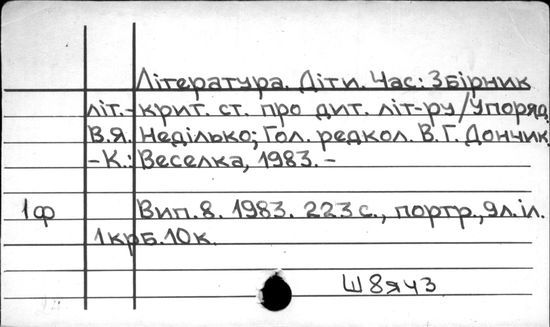 Література. Діти. Час: Збірник
літ.-крит. ст. про дит. літ-ру/Упоряд.
В.Я. Неділько; Гол. редкол. В.Г. Дончик.
-К.: Веселка, 1983.-
1ф Вип. 8. 1983. 223 с., портр., 9л. іл.
1крб. 10к.
Ш8яч3